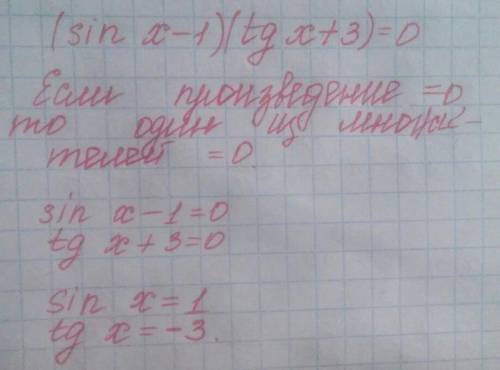 (sin x-1)(tg x+3)=0
Если произведение =0,
то один из множи-
телей =0
sin x-1=0
tg x+3=0
sin x=1
tg x=-3.